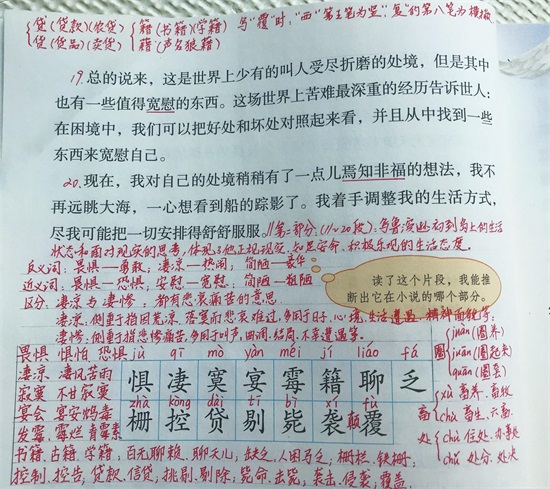 贷(贷款)(农贷) 籍(书籍)(学籍) 写"覆"时,"西"第五笔为竖,"复"的第八笔为横撇
货(货品)(卖货) 藉(声名狼藉)
19.总的说来，这是世界上少有的叫人受尽折磨的处境，但是其中
也有一些值得宽慰的东西。这场世界上苦难最深重的经历告诉世人：
在困境中，我们可以把好处和坏处对照起来看，并且从中找到一些
东西来宽慰自己。
20.现在，我对自己的处境稍稍有了一点儿焉知非福的想法，我不
再远眺大海，一心想看到船的踪影了。我着手调整我的生活方式，
尽我可能把一切安排得舒舒服服。//第二部分:(11~20段):鲁滨逊初到岛上的生活
状态和面对现实的思考,体现了他正视现实、知足安命、积极乐观的生活态度。
反义词:畏惧—勇敢;凄凉—热闹;简陋—豪华
近义词:畏惧—恐惧;安慰—宽慰;简陋—粗陋
区分:凄凉与凄惨:都有悲哀痛苦的意思.
读了这个片段，我能推
断出它在小说的哪个部分。
凄凉:侧重于指因荒凉、落寞而悲哀难过,多用于时、心境、生活遭遇、精神面貌等;
凄惨:侧重于指悲惨痛苦,多用于叫声、曲调、结局、不幸遭遇等。
畏惧 惧怕 恐惧 jù qī mò yàn méi jí liáo fá
凄凉 凄风苦雨 惧凄寞宴霉籍聊乏
寂寞 不甘寂寞 zhà kòng dài tī bì xí fù
宴会 宴安鸩毒 栅控贷剔毙袭颠覆
发霉 霉烂 青霉素
圈 juàn(圈养)
juān(圈起来)
quān(圈套)
畜 xù 畜养、畜牧
chù 畜生、六畜
处 chù 住处、办事处
chǔ 处分、处决
书籍、古籍、学籍;百无聊赖、聊天儿;缺乏、人困马乏;栅栏、铁栅;
控制、控告;贷款、信贷;挑剔、剔除;毙命、击毙;袭击、侵袭;覆盖